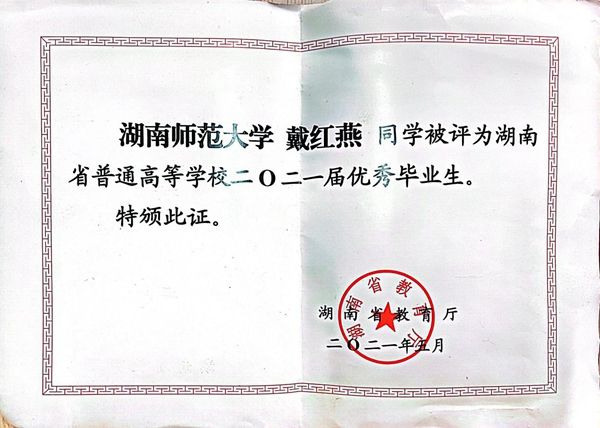 湖南师范大学 戴红燕 同学被评为湖南
省普通高等学校二〇二一届优秀毕业生。
特颁此证。
湖南省教育厅
湖南省教育厅
二〇二一年五月